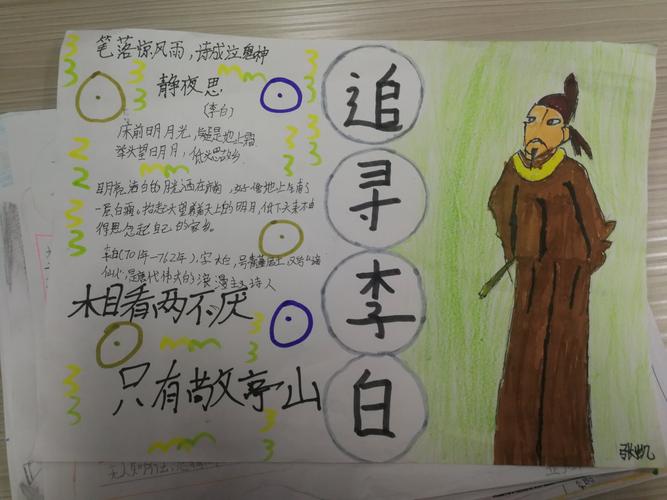 笔落惊风雨，诗成泣鬼神
静夜思
(李白)
床前明月光，疑是地上霜
举头望明月，低头思故乡
明亮洁白的月光洒在窗前，好像地上
一层白霜。抬起头望着天上的明月，低下头来不由
得思念起自己的家乡。
李白(701年—762年)，字太白，号青莲居士，又号"谪
仙人"，是唐代伟大的浪漫主义诗人
相看两不厌
只有敬亭山
追
寻
李
白
张凯